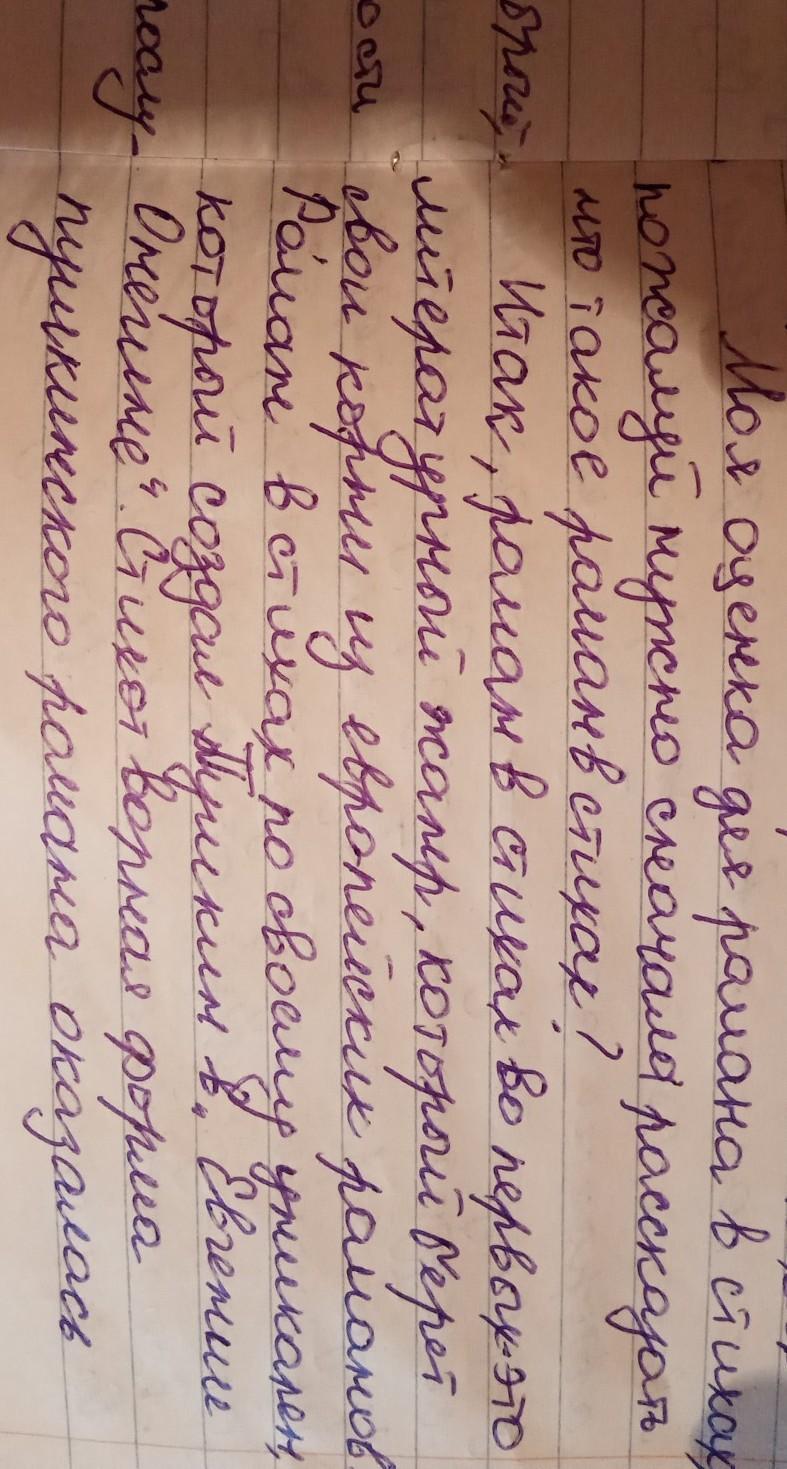 Моя оценка для романа в стихах,
пожалуй нужно сначала рассказать
что такое роман в стихах?
Итак, роман в стихах во первых-это
литературный жанр, который берет
свои корни из европейских романов.
Роман в стихах по своему уникален,
который создал Пушкин в „Евгении
Онегине“. Стихотворная форма
пушкинского романа оказалась
ости